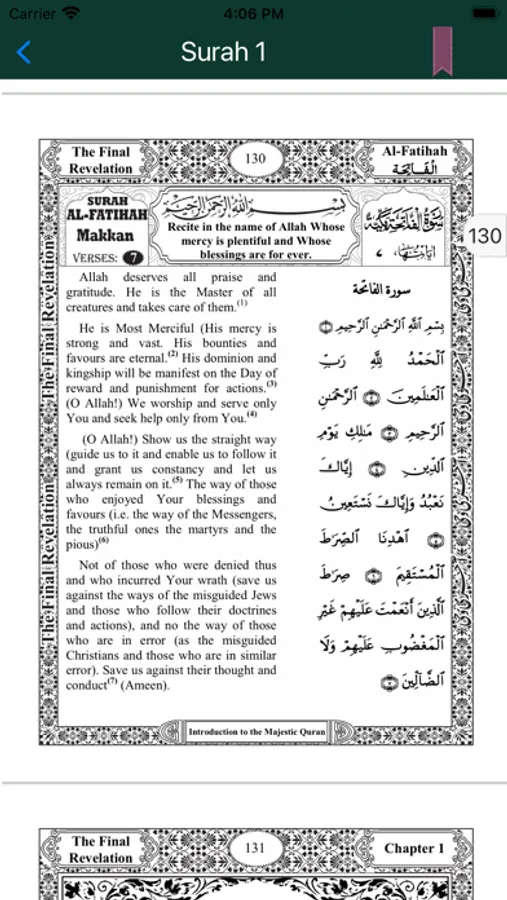 Carrier 4:06 PM
Surah 1
The Final
Revelation
130
Al-Fatihah
الْفَاتِحَة
SURAH
AL-FATIHAH
Makkan
VERSES: 7
بِسْمِ اللَّهِ الرَّحْمَٰنِ الرَّحِيمِ
Recite in the name of Allah Whose
mercy is plentiful and Whose
blessings are for ever.
130
The Final Revelation
The Final Revelation
The Final Revelation
Allah deserves all praise and
gratitude. He is the Master of all
creatures and takes care of them.(1)
He is Most Merciful (His mercy is
strong and vast. His bounties and
favours are eternal.(2) His dominion and
kingship will be manifest on the Day of
reward and punishment for actions.(3)
(O Allah!) We worship and serve only
You and seek help only from You.(4)
(O Allah!) Show us the straight way
(guide us to it and enable us to follow it
and grant us constancy and let us
always remain on it.(5) The way of those
who enjoyed Your blessings and
favours (i.e. the way of the Messengers,
the truthful ones the martyrs and the
pious)(6)
Not of those who were denied thus
and who incurred Your wrath (save us
against the ways of the misguided Jews
and those who follow their doctrines
and actions), and no the way of those
who are in error (as the misguided
Christians and those who are in similar
error). Save us against their thought and
conduct(7) (Ameen).
سورة الفاتحة
بِسْمِ اللَّهِ الرَّحْمَٰنِ الرَّحِيمِ ١
الْحَمْدُ لِلَّهِ رَبِّ
الْعَالَمِينَ ٢ الرَّحْمَٰنِ
الرَّحِيمِ ٣ مَالِكِ يَوْمِ
الدِّينِ ٤ إِيَّاكَ
نَعْبُدُ وَإِيَّاكَ نَسْتَعِينُ
٥ اهْدِنَا الصِّرَاطَ
الْمُسْتَقِيمَ ٦ صِرَاطَ
الَّذِينَ أَنْعَمْتَ عَلَيْهِمْ غَيْرِ
الْمَغْضُوبِ عَلَيْهِمْ وَلَا
الضَّالِّينَ ٧
Introduction to the Majestic Quran
The Final
Revelation
131
Chapter 1